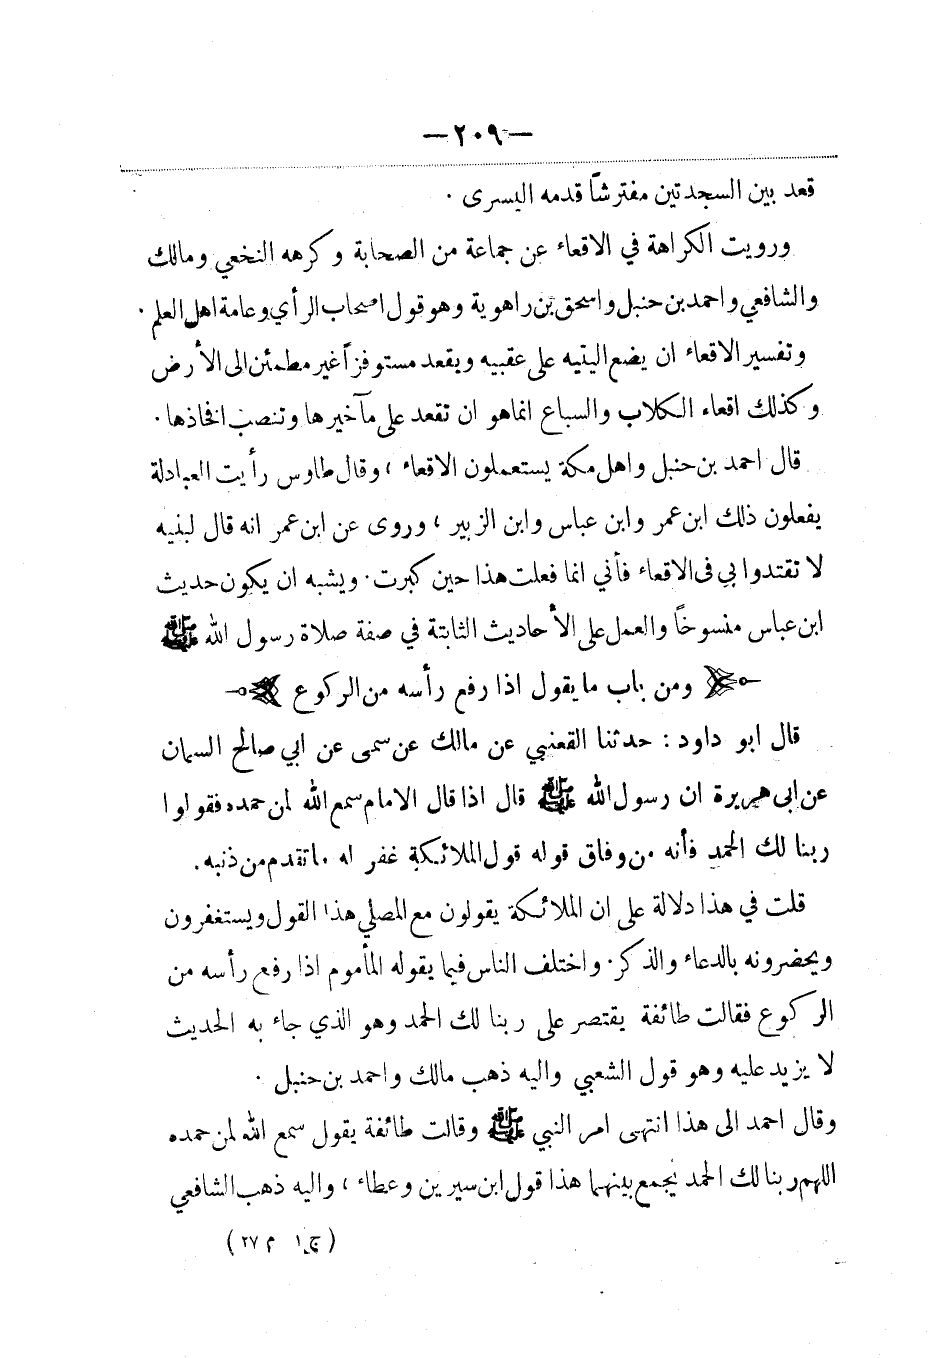 — ٢٠٩ —
قعد بين السجدتين مفترشاً قدمه اليسرى .
ورويت الكراهة في الاقعاء عن جماعة من الصحابة وكرهه النخعي ومالك
والشافعي واحمد بن حنبل واسحق بن راهوية وهو قول اصحاب الرأي وعامة اهل العلم .
وتفسير الاقعاء ان يضع اليتيه على عقبيه ويقعد مستوفزاً غير مطمئن الى الأرض
وكذلك اقعاء الكلاب والسباع انما هو ان تقعد على مآخيرها وتنصب افخاذها .
قال احمد بن حنبل واهل مكة يستعملون الاقعاء ، وقال طاوس رأيت العبادلة
يفعلون ذلك ابن عمر وابن عباس وابن الزبير ، وروى عن ابن عمر انه قال لبنيه
لا تقتدوا بي فى الاقعاء فأني انما فعلت هذا حين كبرت . ويشبه ان يكون حديث
ابن عباس منسوخاً والعمل على الأحاديث الثابتة في صفة صلاة رسول الله ﷺ
ومن باب ما يقول اذا رفع رأسه من الركوع
قال ابو داود : حدثنا القعنبي عن مالك عن سمى عن ابي صالح السمان
عن ابى هريرة ان رسول الله ﷺ قال اذا قال الامام سمع الله لمن حمده فقولوا
ربنا لك الحمد فأنه من وفاق قوله قول الملائكة غفر له ما تقدم من ذنبه .
قلت في هذا دلالة على ان الملائكة يقولون مع المصلي هذا القول ويستغفرون
ويحضرونه بالدعاء والذكر . واختلف الناس فيما يقوله المأموم اذا رفع رأسه من
الركوع فقالت طائفة يقتصر على ربنا لك الحمد وهو الذي جاء به الحديث
لا يزيد عليه وهو قول الشعبي واليه ذهب مالك واحمد بن حنبل .
وقال احمد الى هذا انتهى امر النبي ﷺ وقالت طائفة يقول سمع الله لمن حمده
اللهم ربنا لك الحمد يُجمع بينهما هذا قول ابن سيرين وعطاء ، واليه ذهب الشافعي
(ج ١ م ٢٧)